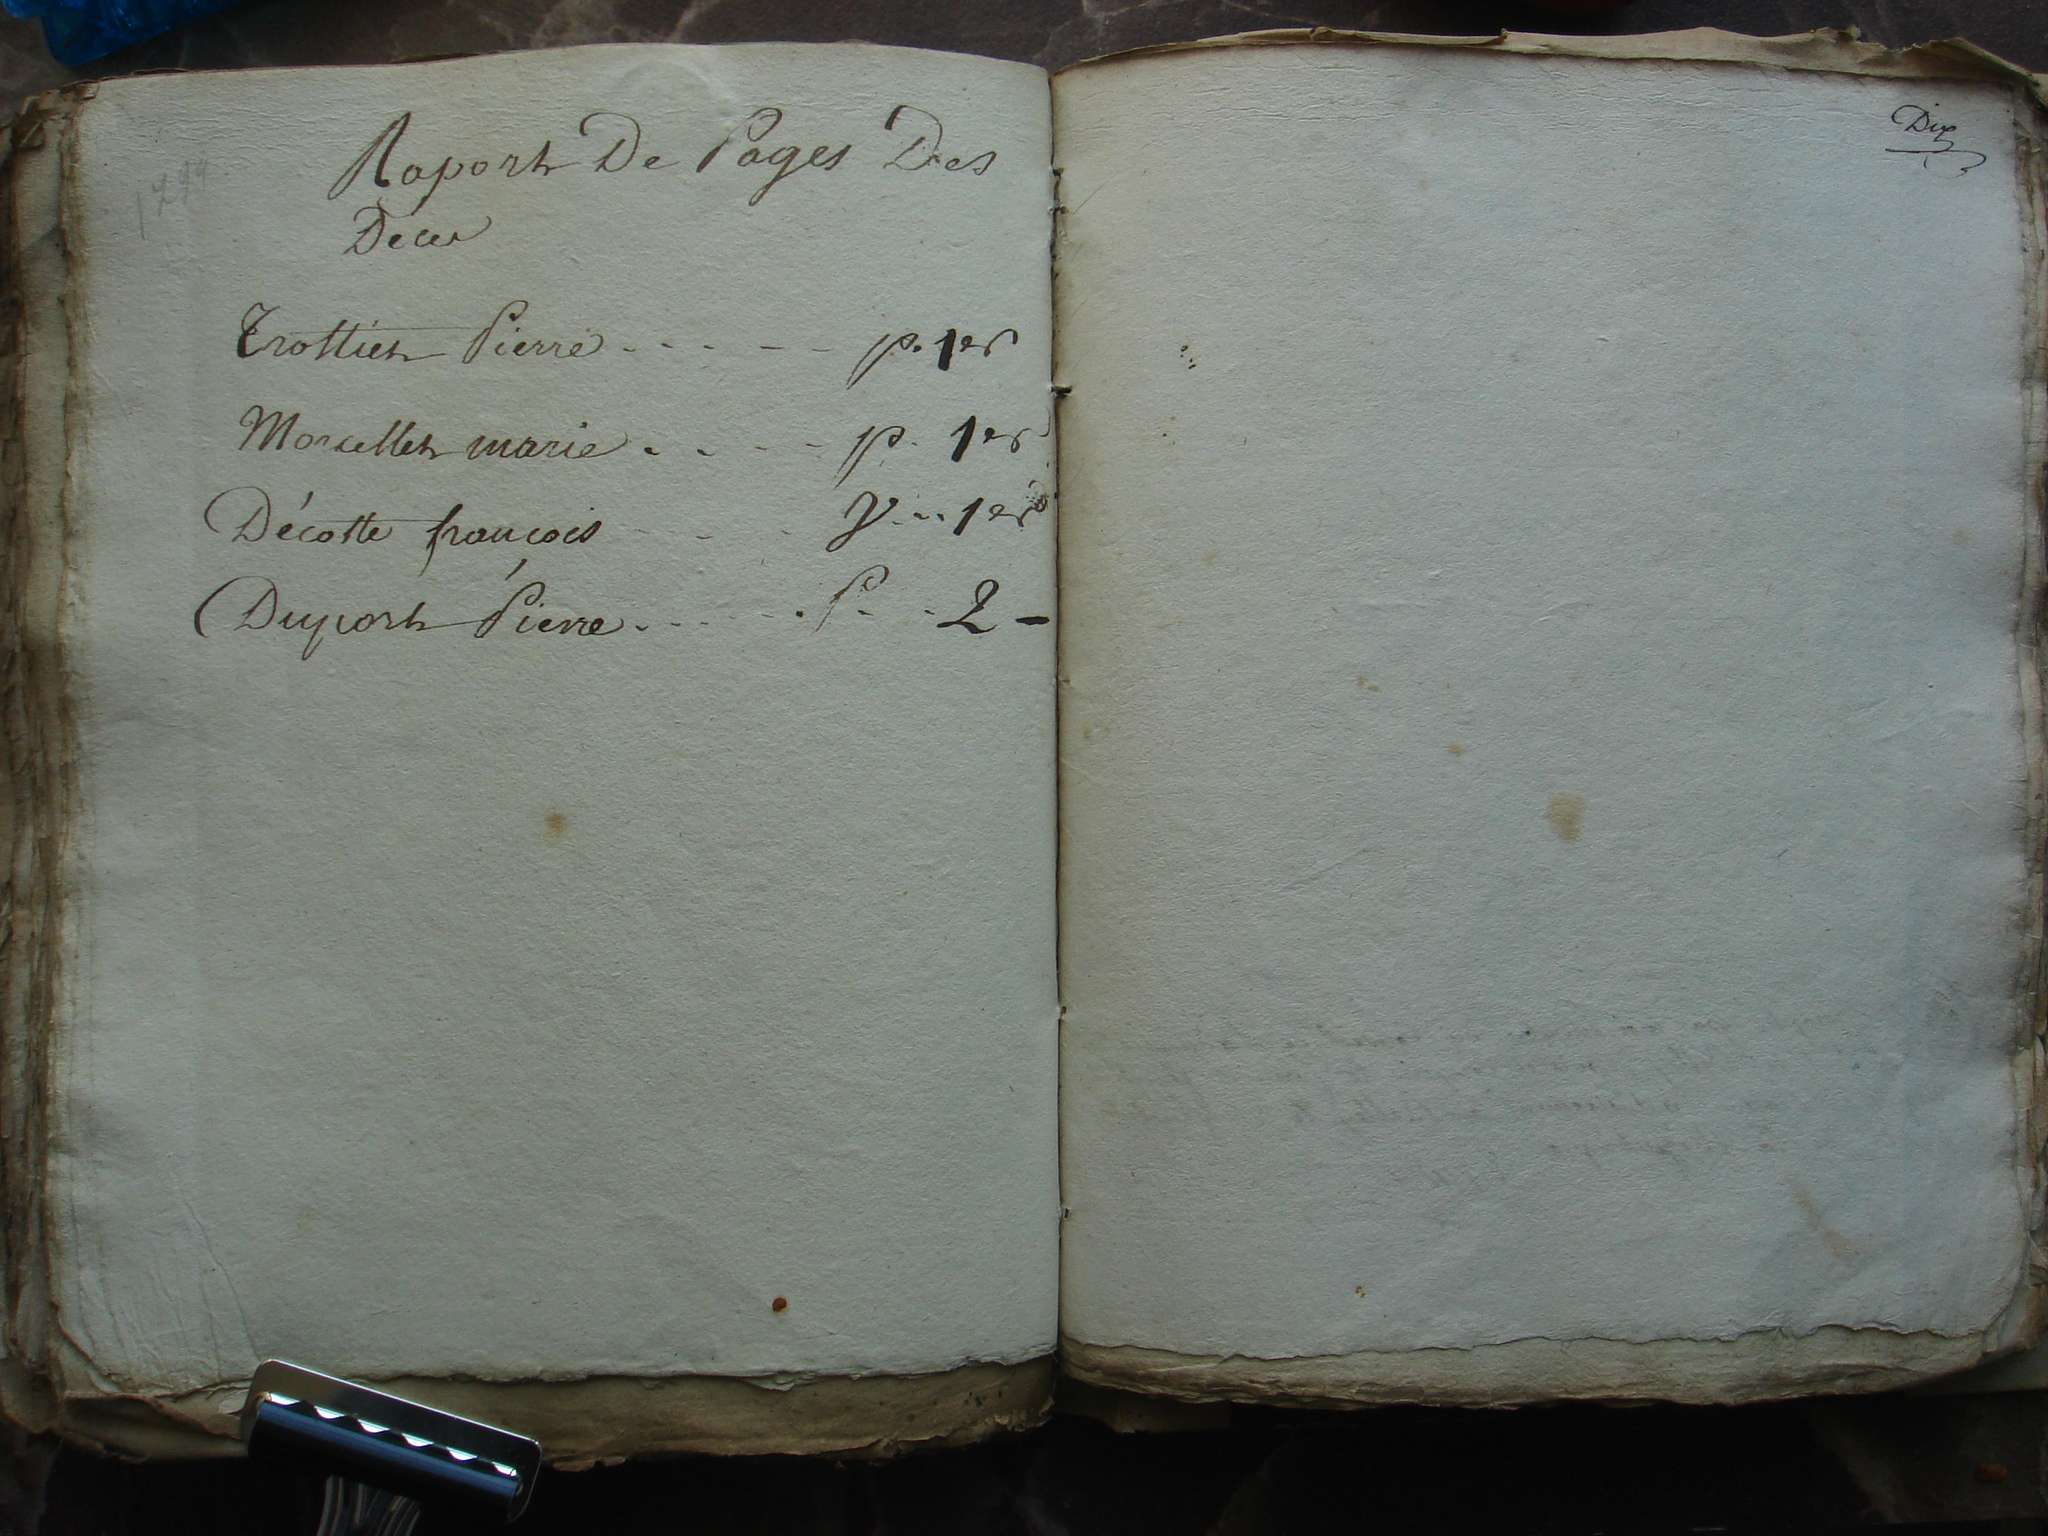 Raport De Pages Des
Deces
1794
Trottier Pierre - - - - - - p. 1er
Morcellet marie . . - - - p. 1er
Décotte françois - - - - p - - 1er
Duport Pierre - - - - - . P - - 2 -
Dix